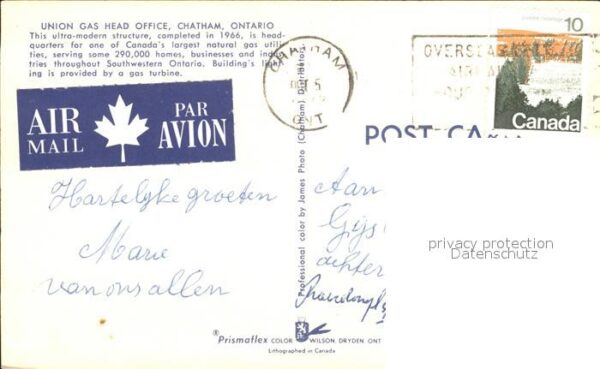 UNION GAS HEAD OFFICE, CHATHAM, ONTARIO
This ultra-modern structure, completed in 1966, is head-
quarters for one of Canada's largest natural gas utili-
ties, serving some 290,000 homes, businesses and indus-
tries throughout Southwestern Ontario. Building's light-
ing is provided by a gas turbine.
AIR MAIL
PAR AVION
CHATHAM
5
ONT
OVERSEAS
10
Canada
POST CARD
Hartelyke groeten
Marie
van ons allen
Professional color by James Photo (Chatham) Distributors
Aan
Gijs
achter
privacy protection
Datenschutz
® Prismaflex COLOR
WILSON, DRYDEN, ONT
Lithographed in Canada